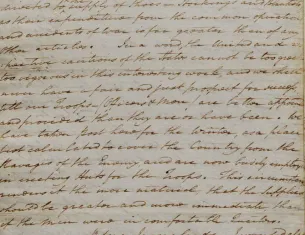 directed to supply of those in Stockings and
as their expenditures from the common operation
and accidents of War is far greater than of any
other articles. In a word, the United and
exertions of the States cannot be too great
too vigorous in this interesting work, and we shall
never have a fair and just prospect for success
till our Troops (Officers & Men) are better
and provided than they are or have been. We
have taken Post here for the Winter, as a place
best calculated to cover the Country from the
Ravages of the Enemy and are now busily employed
in erecting Huts for the Troops. This circumstance
renders it the more material that the Supplies
should be greater and more immediate than
if the Men were in comfortable Quarters.